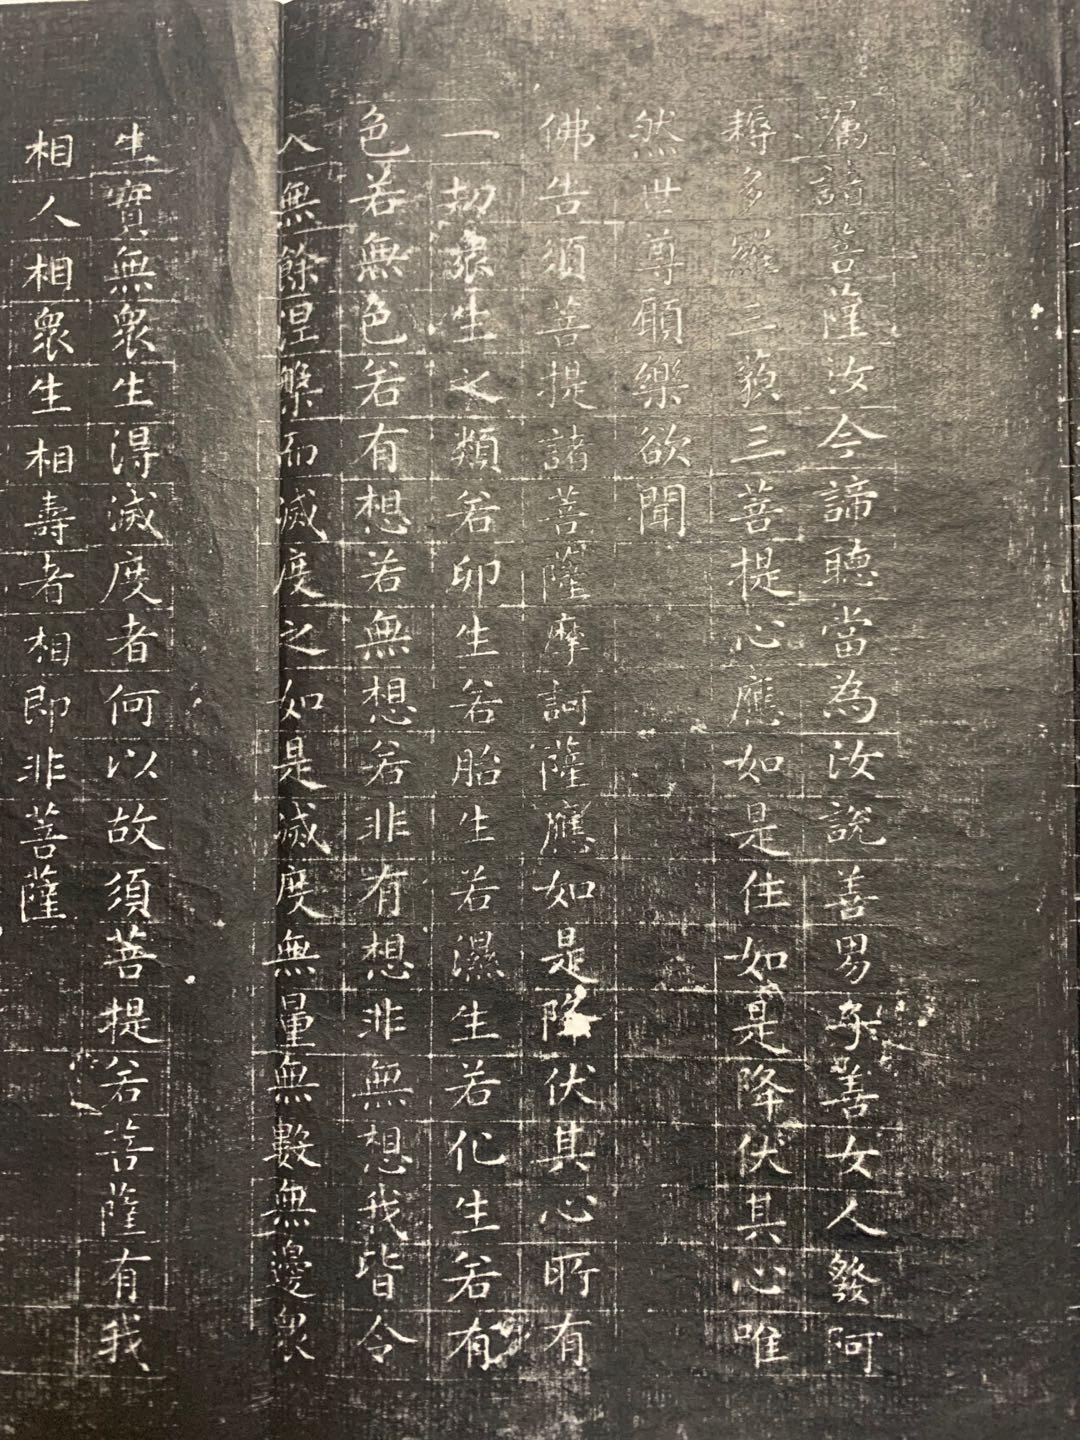 囑諸菩薩汝今諦聽當為汝說善男子善女人發阿
耨多羅三藐三菩提心應如是住如是降伏其心唯
然世尊願樂欲聞
佛告須菩提諸菩薩摩訶薩應如是降伏其心所有
一切眾生之類若卵生若胎生若濕生若化生若有
色若無色若有想若無想若非有想非無想我皆令
入無餘涅槃而滅度之如是滅度無量無數無邊眾
生實無眾生得滅度者何以故須菩提若菩薩有我
相人相眾生相壽者相即非菩薩